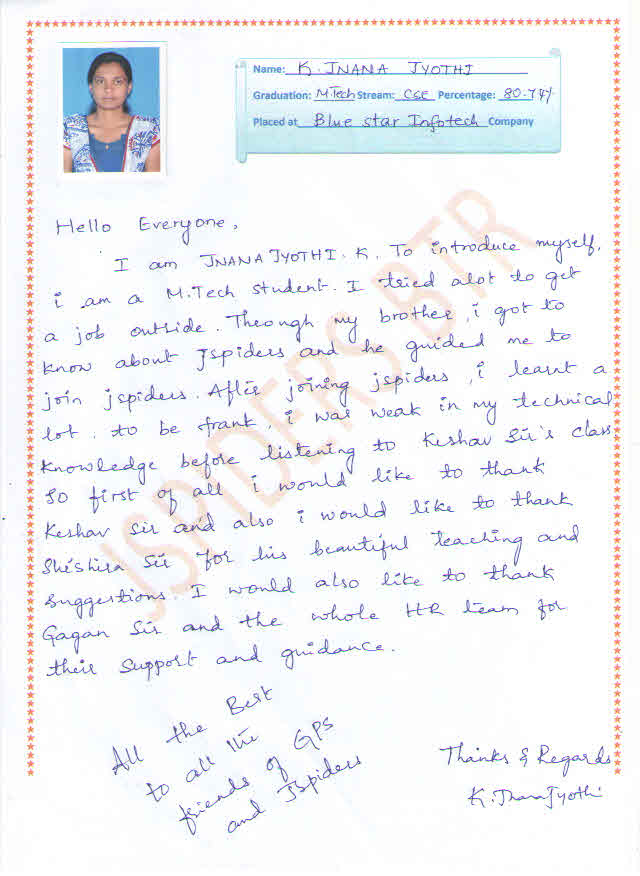 Name: K. JNANA JYOTHI
Graduation: M.Tech Stream: CSE Percentage: 80.74%
Placed at Blue star Infotech Company
Hello Everyone,
I am JNANA JYOTHI. K. To introduce myself,
i am a M.Tech student. I tried alot to get
a job outside. Through my brother, i got to
know about Jspiders and he guided me to
join jspiders. After joining jspiders, i learnt a
lot. to be frank, i was weak in my technical
knowledge before listening to Keshav Sir's class.
so first of all i would like to thank
Keshav sir and also i would like to thank
Sheshira Sir for his beautiful teaching and
suggestions. I would also like to thank
Gagan Sir and the whole HR team for
their support and guidance.
All the Best
to all the
friends of GPS
and JSpiders
Thanks & Regards
K. JnanaJyothi
JSPIDERS BTR